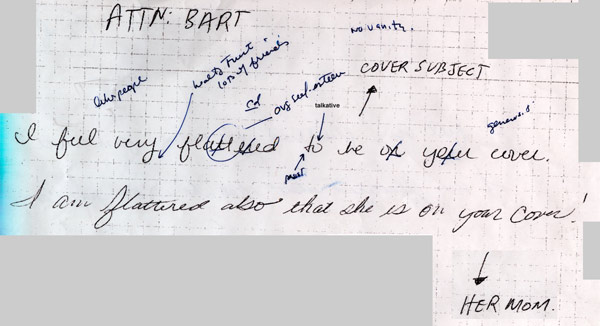 ATTN: BART
no vanity.
lots of friends
COVER SUBJECT
avg self-esteem
talkative
generous
I feel very flattered to be on your cover.
I am flattered also that she is on your cover!
HER MOM.